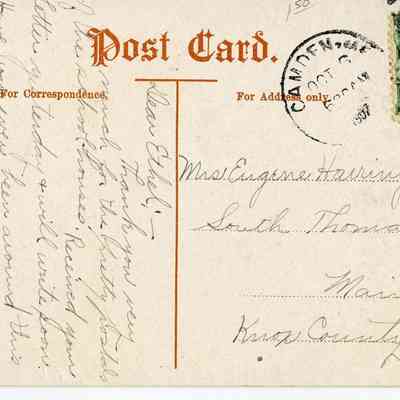 1.50
Post Card.
For Correspondence.
For Address only.
CAMDEN, ME
OCT
1907
Dear Ethel:-
Thank you very
much for the pretty postals
of the school houses. Received your
letter yesterday & will write soon.
you ever been around this
Mrs Eugene Harring
South Thoma
Main
Knox County